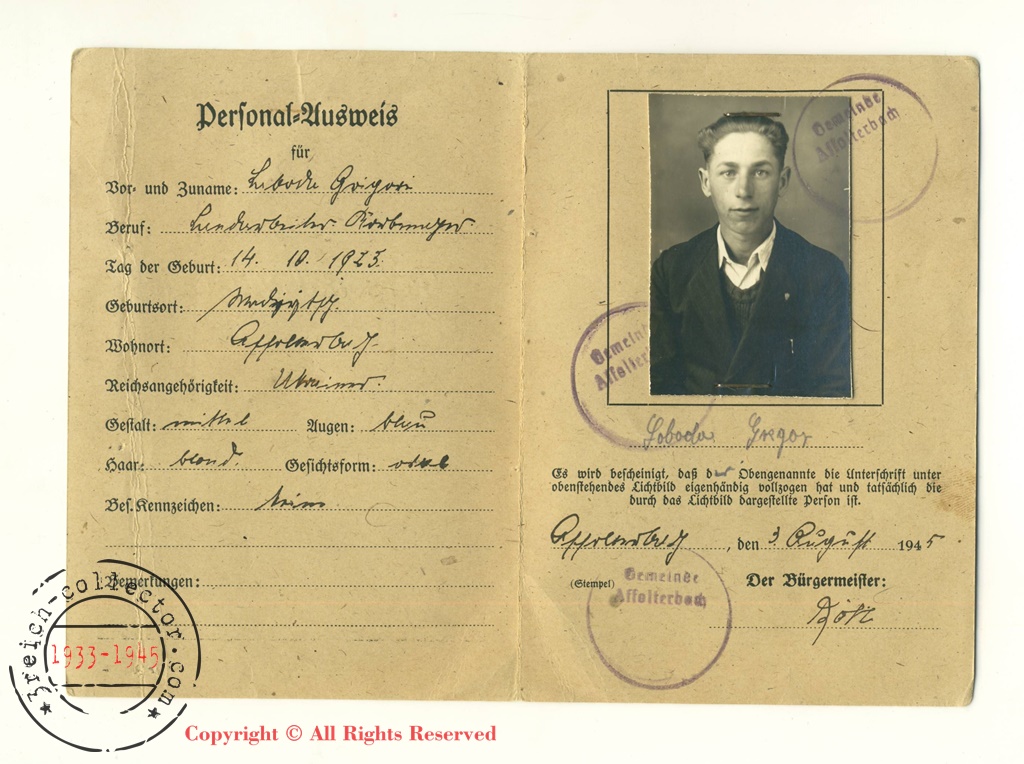 Personal-Ausweis
für
Vor- und Zuname: Lebode Grigori
Beruf: Landarbeiter
Tag der Geburt: 14. 10. 1923.
Geburtsort:
Wohnort: Affolterbach
Reichsangehörigkeit: Ukrainer.
Gestalt: mittel Augen: blau
Haar: blond. Gesichtsform: oval
Bes. Kennzeichen: keine
Bemerkungen:
Gemeinde
Affolterbach
Gemeinde
Affolterbach
Loboda Gregor
Es wird bescheinigt, daß der Obengenannte die Unterschrift unter
obenstehendes Lichtbild eigenhändig vollzogen hat und tatsächlich die
durch das Lichtbild dargestellte Person ist.
Affolterbach, den 3. August 1945.
(Stempel) Der Bürgermeister:
Gemeinde
Affolterbach
3reich-collector.com
1933-1945
Copyright © All Rights Reserved